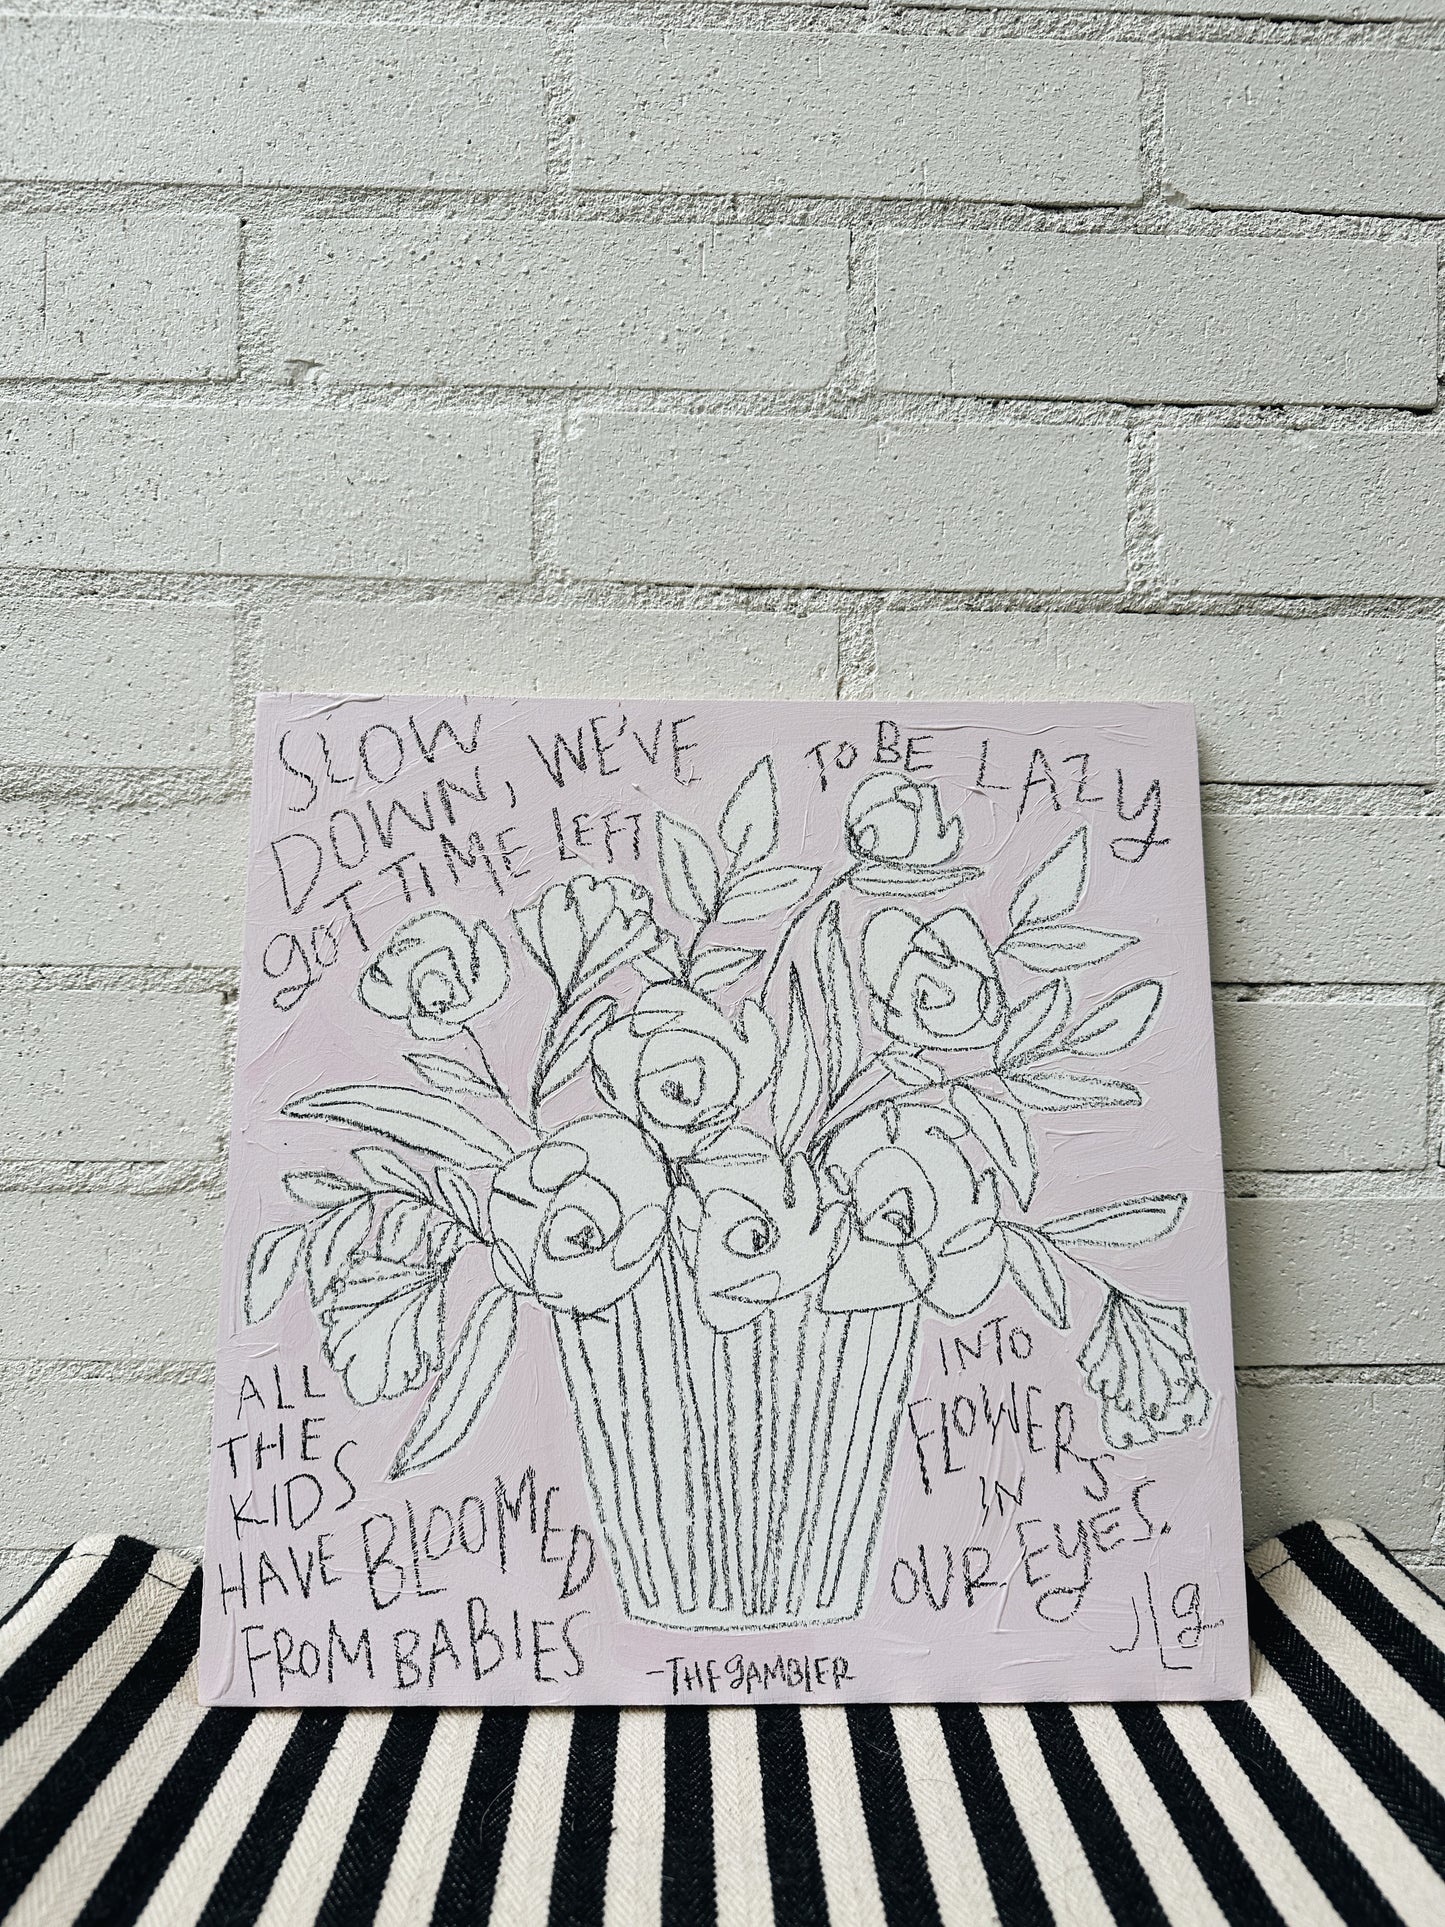 SLOW
DOWN, WE'VE
gOT TIME LEFT
TO BE LAZY
ALL
THE
KIDS
HAVE BLOOMED
FROM BABIES
INTO
FLOWERS
IN
OUR EYES.
-THE gAMBLER
JLg